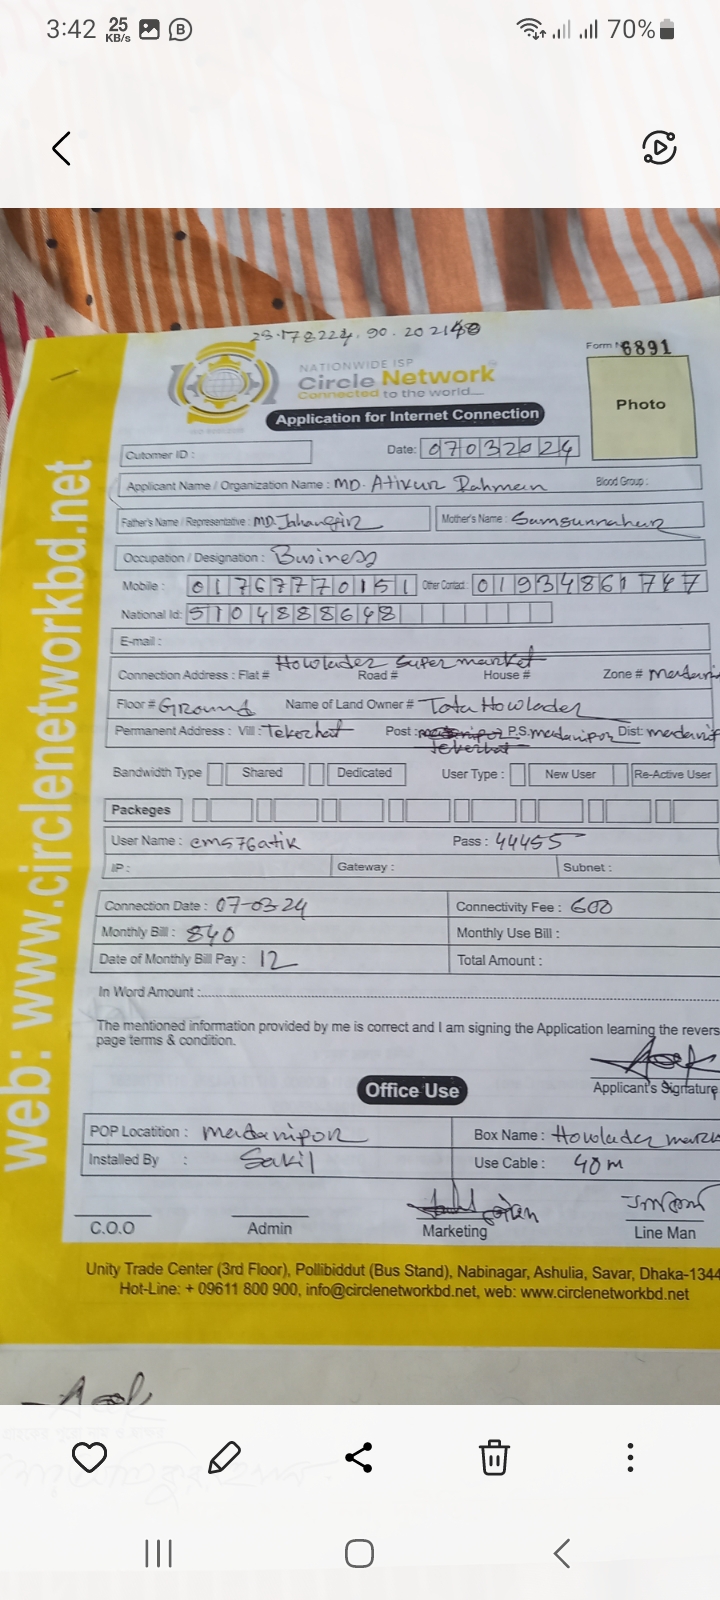 3:42 25 KB/s B 70%
23.178224, 90.202140
Form N 6891
NATIONWIDE ISP
Circle Network
Connected to the world...
Photo
Application for Internet Connection
Cutomer ID : Date: 07032024
Applicant Name / Organization Name : MD. Atikur Rahman Blood Group :
Father's Name / Representative : MD. Jahangir Mother's Name : Samsunnahar
Occupation / Designation : Business
Mobile : 01767770151 Other Contact : 01934861747
National Id: 5104888648
E-mail :
Howlader Super market
Connection Address : Flat # Road # House # Zone # madari
Floor # Ground Name of Land Owner # Tota Howlader
Permanent Address : Vill : Tekerhat Post : P.S. madaripor Dist: madarip
Tekerhat
Bandwidth Type Shared Dedicated User Type : New User Re-Active User
Packeges
User Name : cms76atik Pass : 44455
IP : Gateway : Subnet :
Connection Date : 07-03-24 Connectivity Fee : 600
Monthly Bill : 840 Monthly Use Bill :
Date of Monthly Bill Pay : 12 Total Amount :
In Word Amount :
The mentioned information provided by me is correct and I am signing the Application learning the revers
page terms & condition.
Applicant's Signature
Office Use
POP Locatition : madaripor Box Name : Howlader mark
Installed By : Sakil Use Cable : 40m
C.O.O Admin Marketing Line Man
Unity Trade Center (3rd Floor), Pollibiddut (Bus Stand), Nabinagar, Ashulia, Savar, Dhaka-1344
Hot-Line: + 09611 800 900, info@circlenetworkbd.net, web: www.circlenetworkbd.net
web: www.circlenetworkbd.net